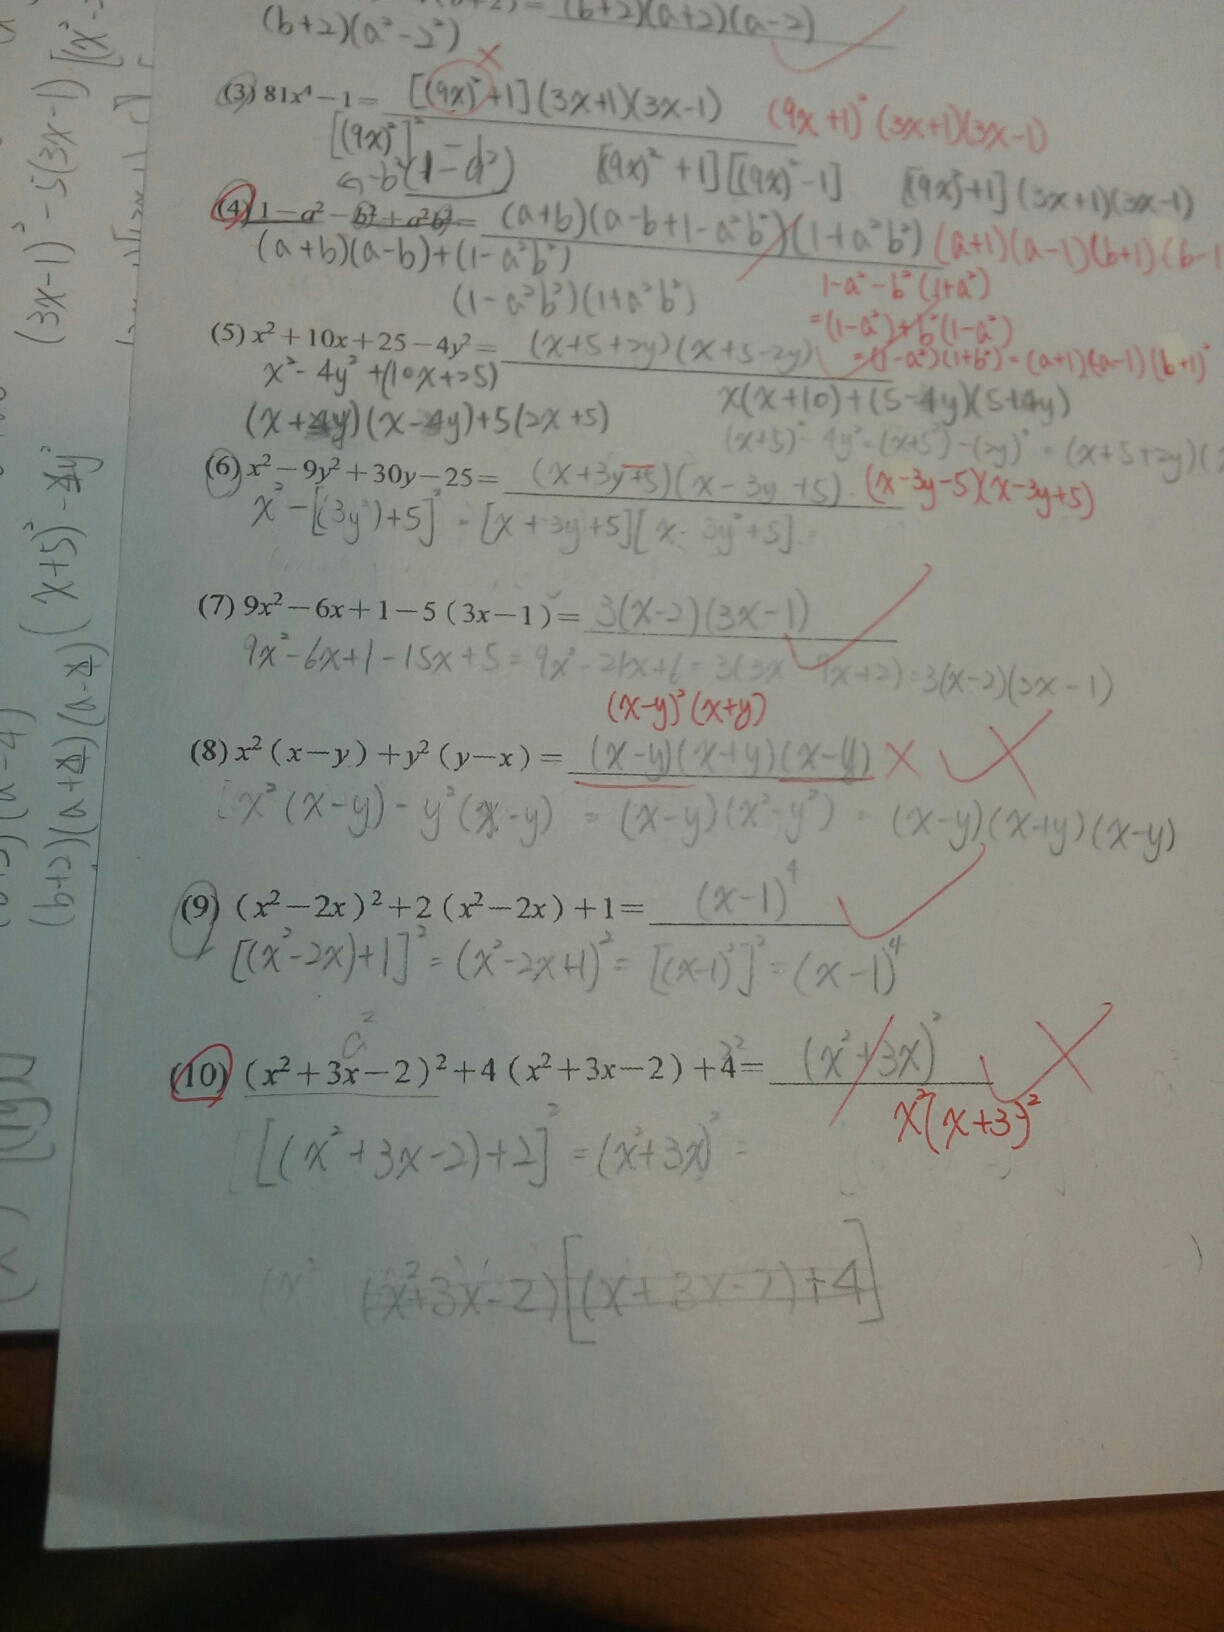 (b+2)(a+2)(a-2)
(b+2)(a²-2²)
(3) 81x⁴-1= [(9x)²+1](3x+1)(3x-1) (9x+1)²(3x+1)(3x-1)
[(9x)²]²
-b²(1-a²) [(9x)²+1][(9x)²-1] [(9x)²+1](3x+1)(3x-1)
(4) 1-a²-b²+a²b²= (a+b)(a-b+1-a²b²)(1+a²b²) (a+1)(a-1)(b+1)(b-1
(a+b)(a-b)+(1-a²b²) 1-a²-b²(1+a²)
(1-a²b²)(1+a²b²) =(1-a²)+b²(1-a²)
(5) x²+10x+25-4y²= (x+5+2y)(x+5-2y) =(1-a²)(1+b²)=(a+1)(a-1)(b+1)²
x²-4y²+(10x+25) x(x+10)+(5-4y)(5+4y)
(x+4y)(x-4y)+5(2x+5)
(x+5)²-4y²=(x+5)²-(2y)²=(x+5+2y)(
(6) x²-9y²+30y-25= (x+3y+5)(x-3y+5) (x-3y-5)(x-3y+5)
x²-[(3y²)+5]² = [x+3y+5][x-3y²+5]
(7) 9x²-6x+1-5(3x-1)= 3(x-2)(3x-1)
9x²-6x+1-15x+5=9x²-21x+6=3(3x²-7x+2)=3(x-2)(3x-1)
(x-y)²(x+y)
(8) x²(x-y)+y²(y-x)= (x-y)(x+y)(x-y)
x²(x-y)-y²(x-y) = (x-y)(x²-y²) = (x-y)(x+y)(x-y)
(9) (x²-2x)²+2(x²-2x)+1= (x-1)⁴
[(x²-2x)+1]²=(x²-2x+1)²=[(x-1)²]²=(x-1)⁴
a² 2²
(10) (x²+3x-2)²+4(x²+3x-2)+4= (x²+3x)²
x²(x+3)²
[(x²+3x-2)+2]²=(x²+3x)²=
(x²+3x-2)[(x+3x-2)+4]
(3x-1)²-5(3x-1)
(x+5)²-4y²
(b+2)(a+2)(a-2)